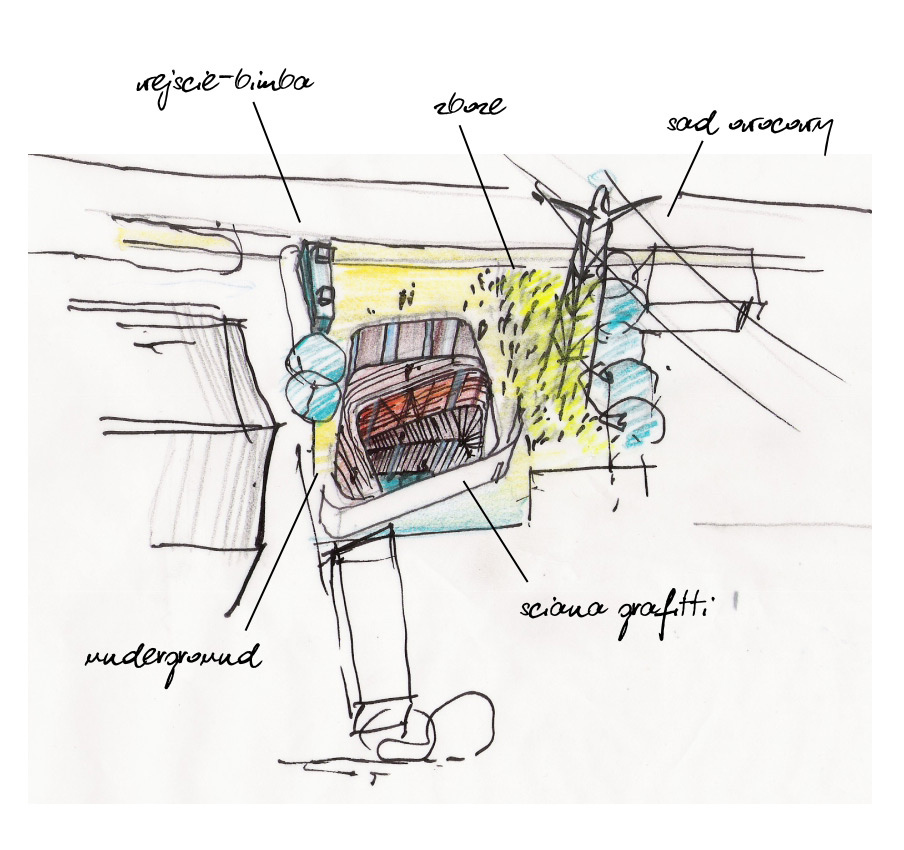 wejscie-bimba
zboze
sad owocowy
sciana grafitti
underground